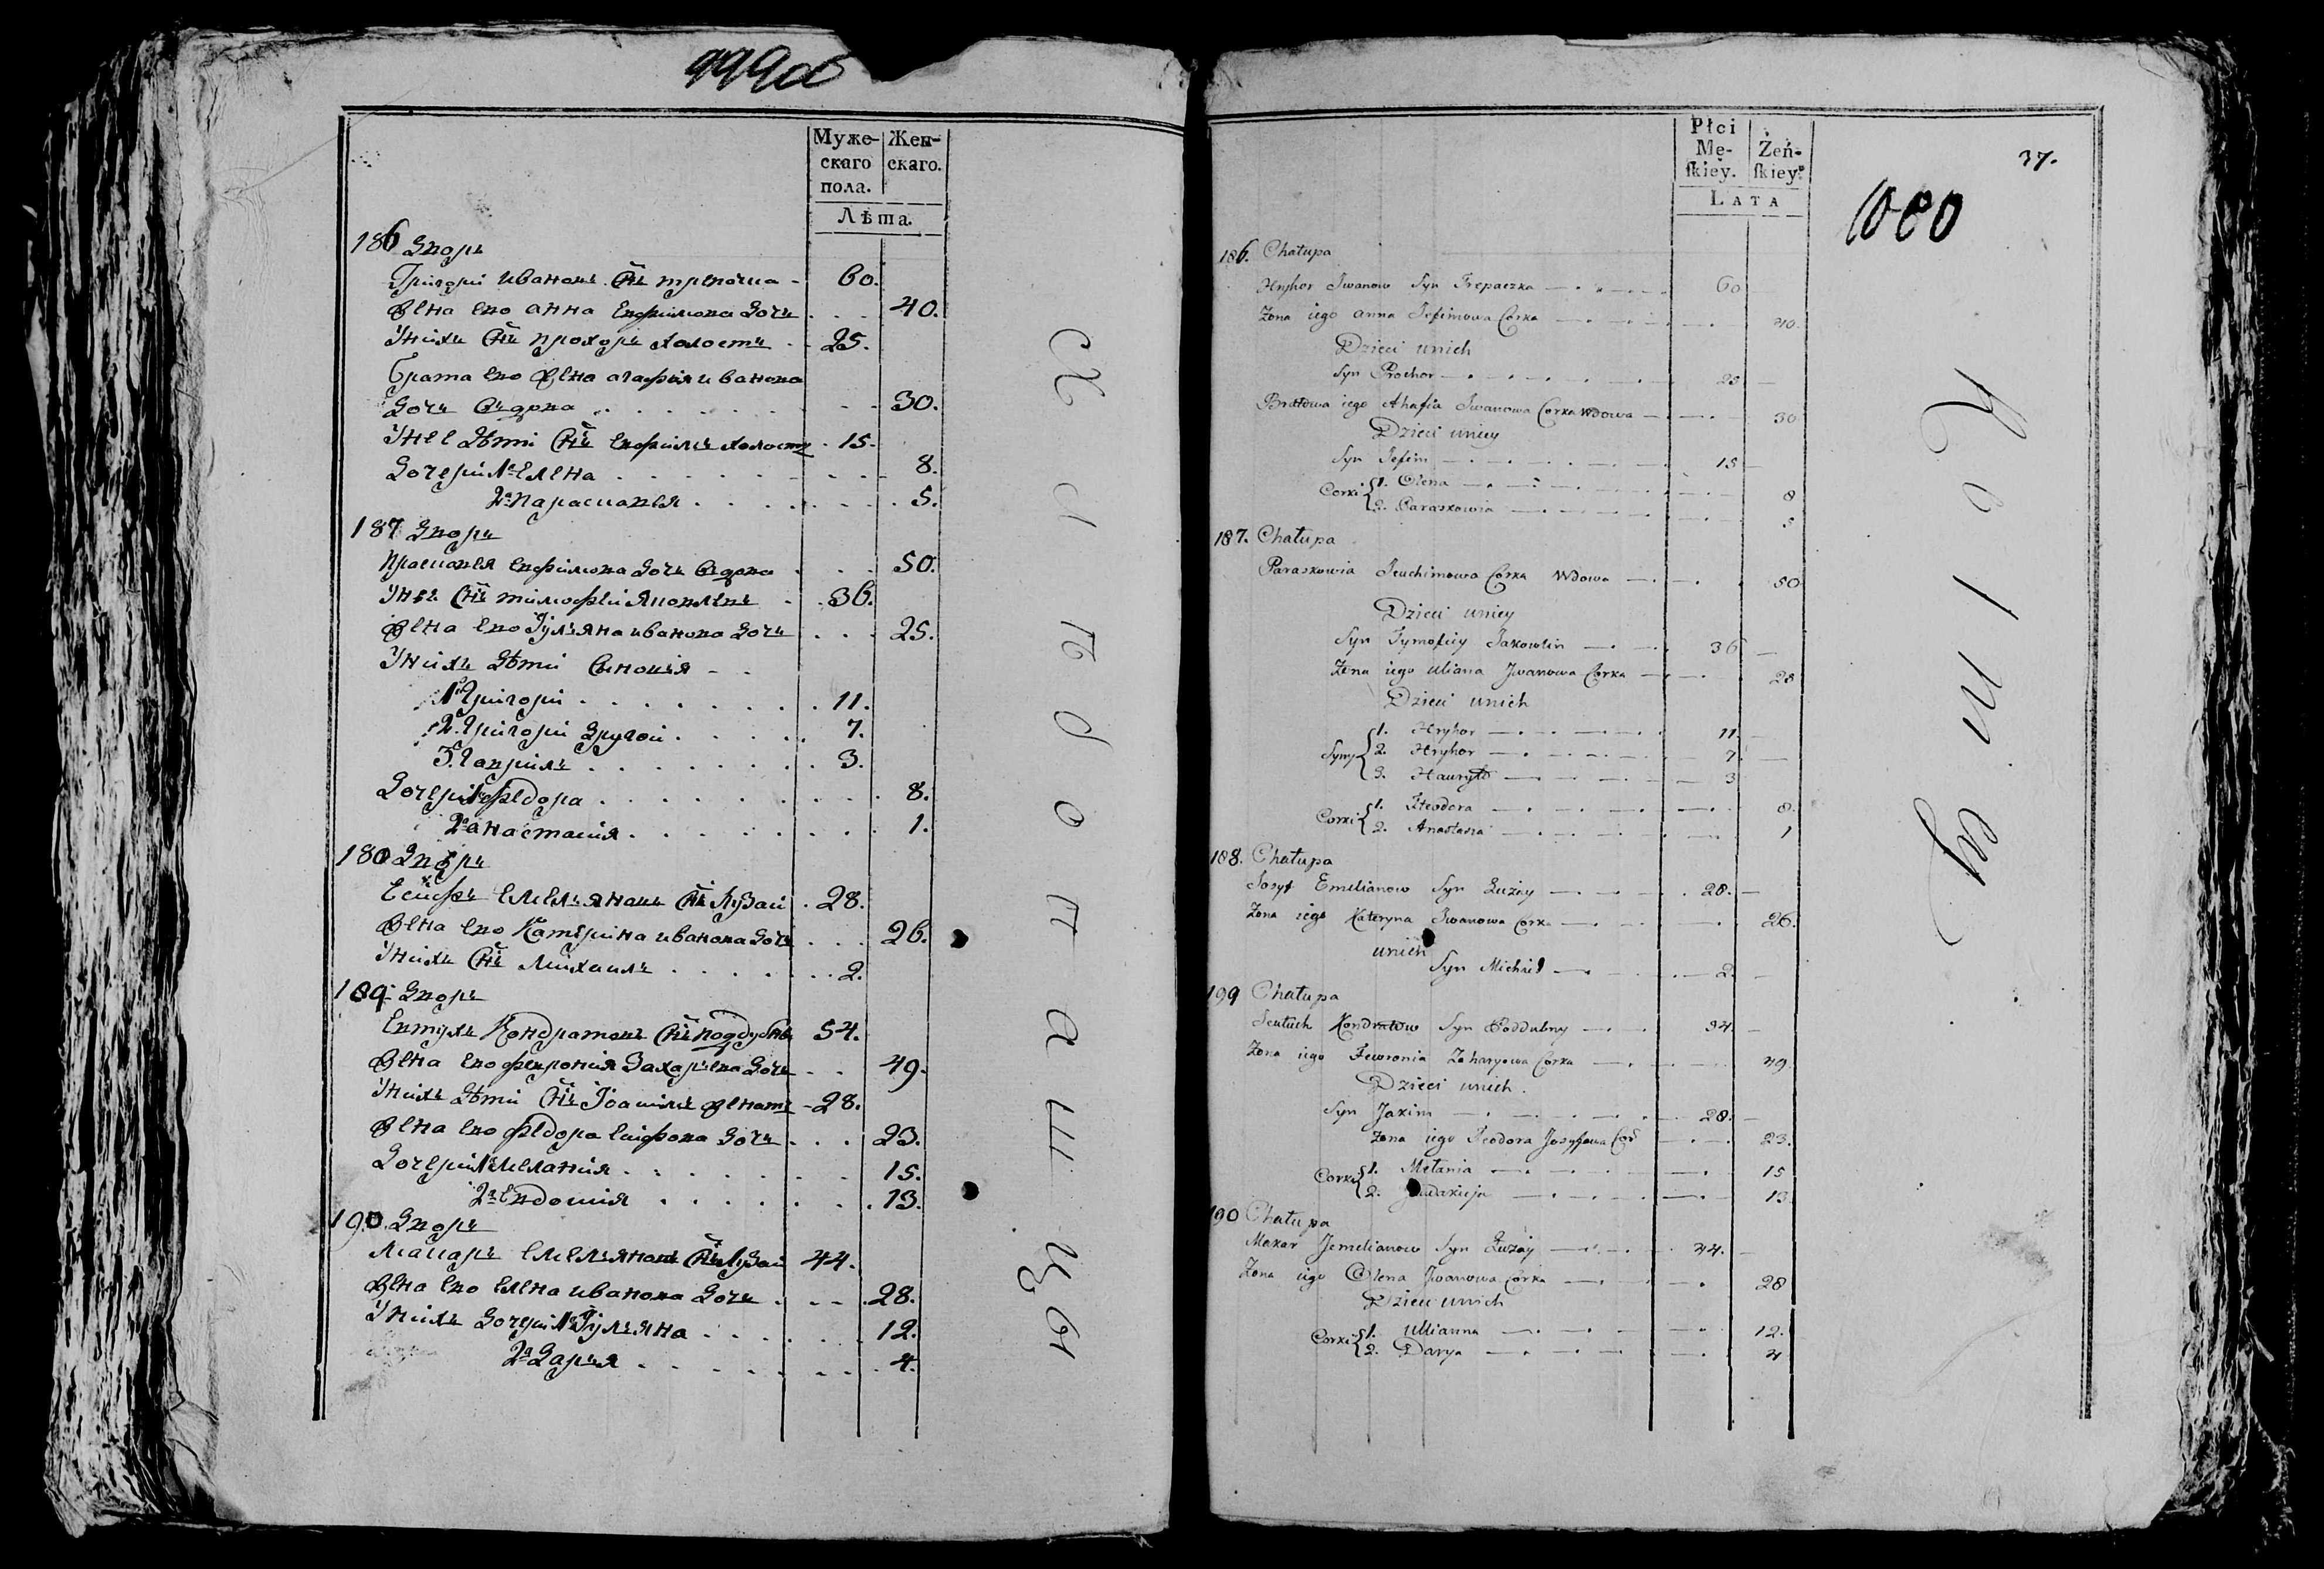 999об
Муже-
скаго
пола.
Жен-
скаго.
Лѣта.
186 Дворъ
Григорій Ивановъ Снъ трепачка - 60.
Жена ево Анна Евфимова дочь . . . 40.
Унихъ Снъ Прохоръ холостъ - 25.
Брата ево жена Агафія Иванова
дочь вдова . . . 30.
Унее дѣти Снъ Евфимъ холостъ . 15.
Дочери 1я Елена . . . 8.
2я Парасковья . . . 5.
187 Дворъ
Прасковья Евфимова дочь вдова . . 50.
Унеи Снъ Тимофеи Яковлевъ . 36.
Жена ево Iульяна Иванова дочь . . . 25.
Унихъ дѣти Сыновія - -
1й Григори . . . 11.
2. Григори другой . . . 7.
3. Гаврилъ . . . 3.
Дочери 1я Федора . . . 8.
2я Анастасия . . . 1.
188 Дворъ
Есифъ Емельяновъ Снъ Лузаи . 28.
Жена ево Катерина Иванова дочь . . . 26.
Унихъ Снъ Михаилъ . . . 2.
189. Дворъ
Евтухъ Кондратовъ Снъ поддубны 54.
Жена ево Февронія Захарьева дочь . . 49.
Унихъ дѣти Снъ Iоакимъ женатъ - 28.
Жена ево Федора Есифова дочь . . . 23.
Дочери 1я Меланія . . . 15.
2я Евдокия . . . 13.
190. Дворъ
Макаръ Емельяновъ Снъ Лузаи 44.
Жена ево Елена Иванова дочь . . . 28.
Унихъ дочери 1я Iульяна . . . 12.
2я Дарья . . . 4.
Хлѣбопашцы
Płci
Mę-
ſkiey.
Żeń-
ſkiey.
LATA
37.
1000
186. Chałupa
Hryhor Iwanow Syn Trepaczka 60
Zona iego anna Jefimowa Corka 40.
Dzieci unich
Syn Prochor 25
Bratowa iego Ahafia Iwanowa Corka Wdowa 30
Dzieci uniey
Syn Jefim 15
Corki 1. Olena 8
2. Paraskowia 5
187. Chałupa
Paraskowia Jeuchimowa Corka Wdowa 50
Dzieci uniey
Syn Tymofiey Jakowlin 36
Zona iego uliana Jwanowa Corka 25
Dzieci unich
Syny 1. Hryhor 11.
2. Hryhor 7
3. Hauryło 3
Corki 1. Fteodora 8.
2. Anastasia 1
188. Chałupa
Iosyf Emelianow Syn Łuzay 28.
Zona iego Kateryna Iwanowa Corka 26.
unich
Syn Michał 2
199 Chałupa
Jeutuch Kondratow Syn Poddubny 54.
Zona iego Fewronia Zaharyowa Corka 49.
Dzieci unich.
Syn Jakim 28.
Zona iego Teodora Josyfowa Cor 23.
Corki 1. Mełania 15
2. Jeudakieja 13
190 Chałupa
Makar Jemelianow Syn Łuzay 44.
Zona iego Olena Jwanowa Corka 28
Dzieci unich
Corki 1. Ullianna 12.
2. Darya 4
Rolnicy